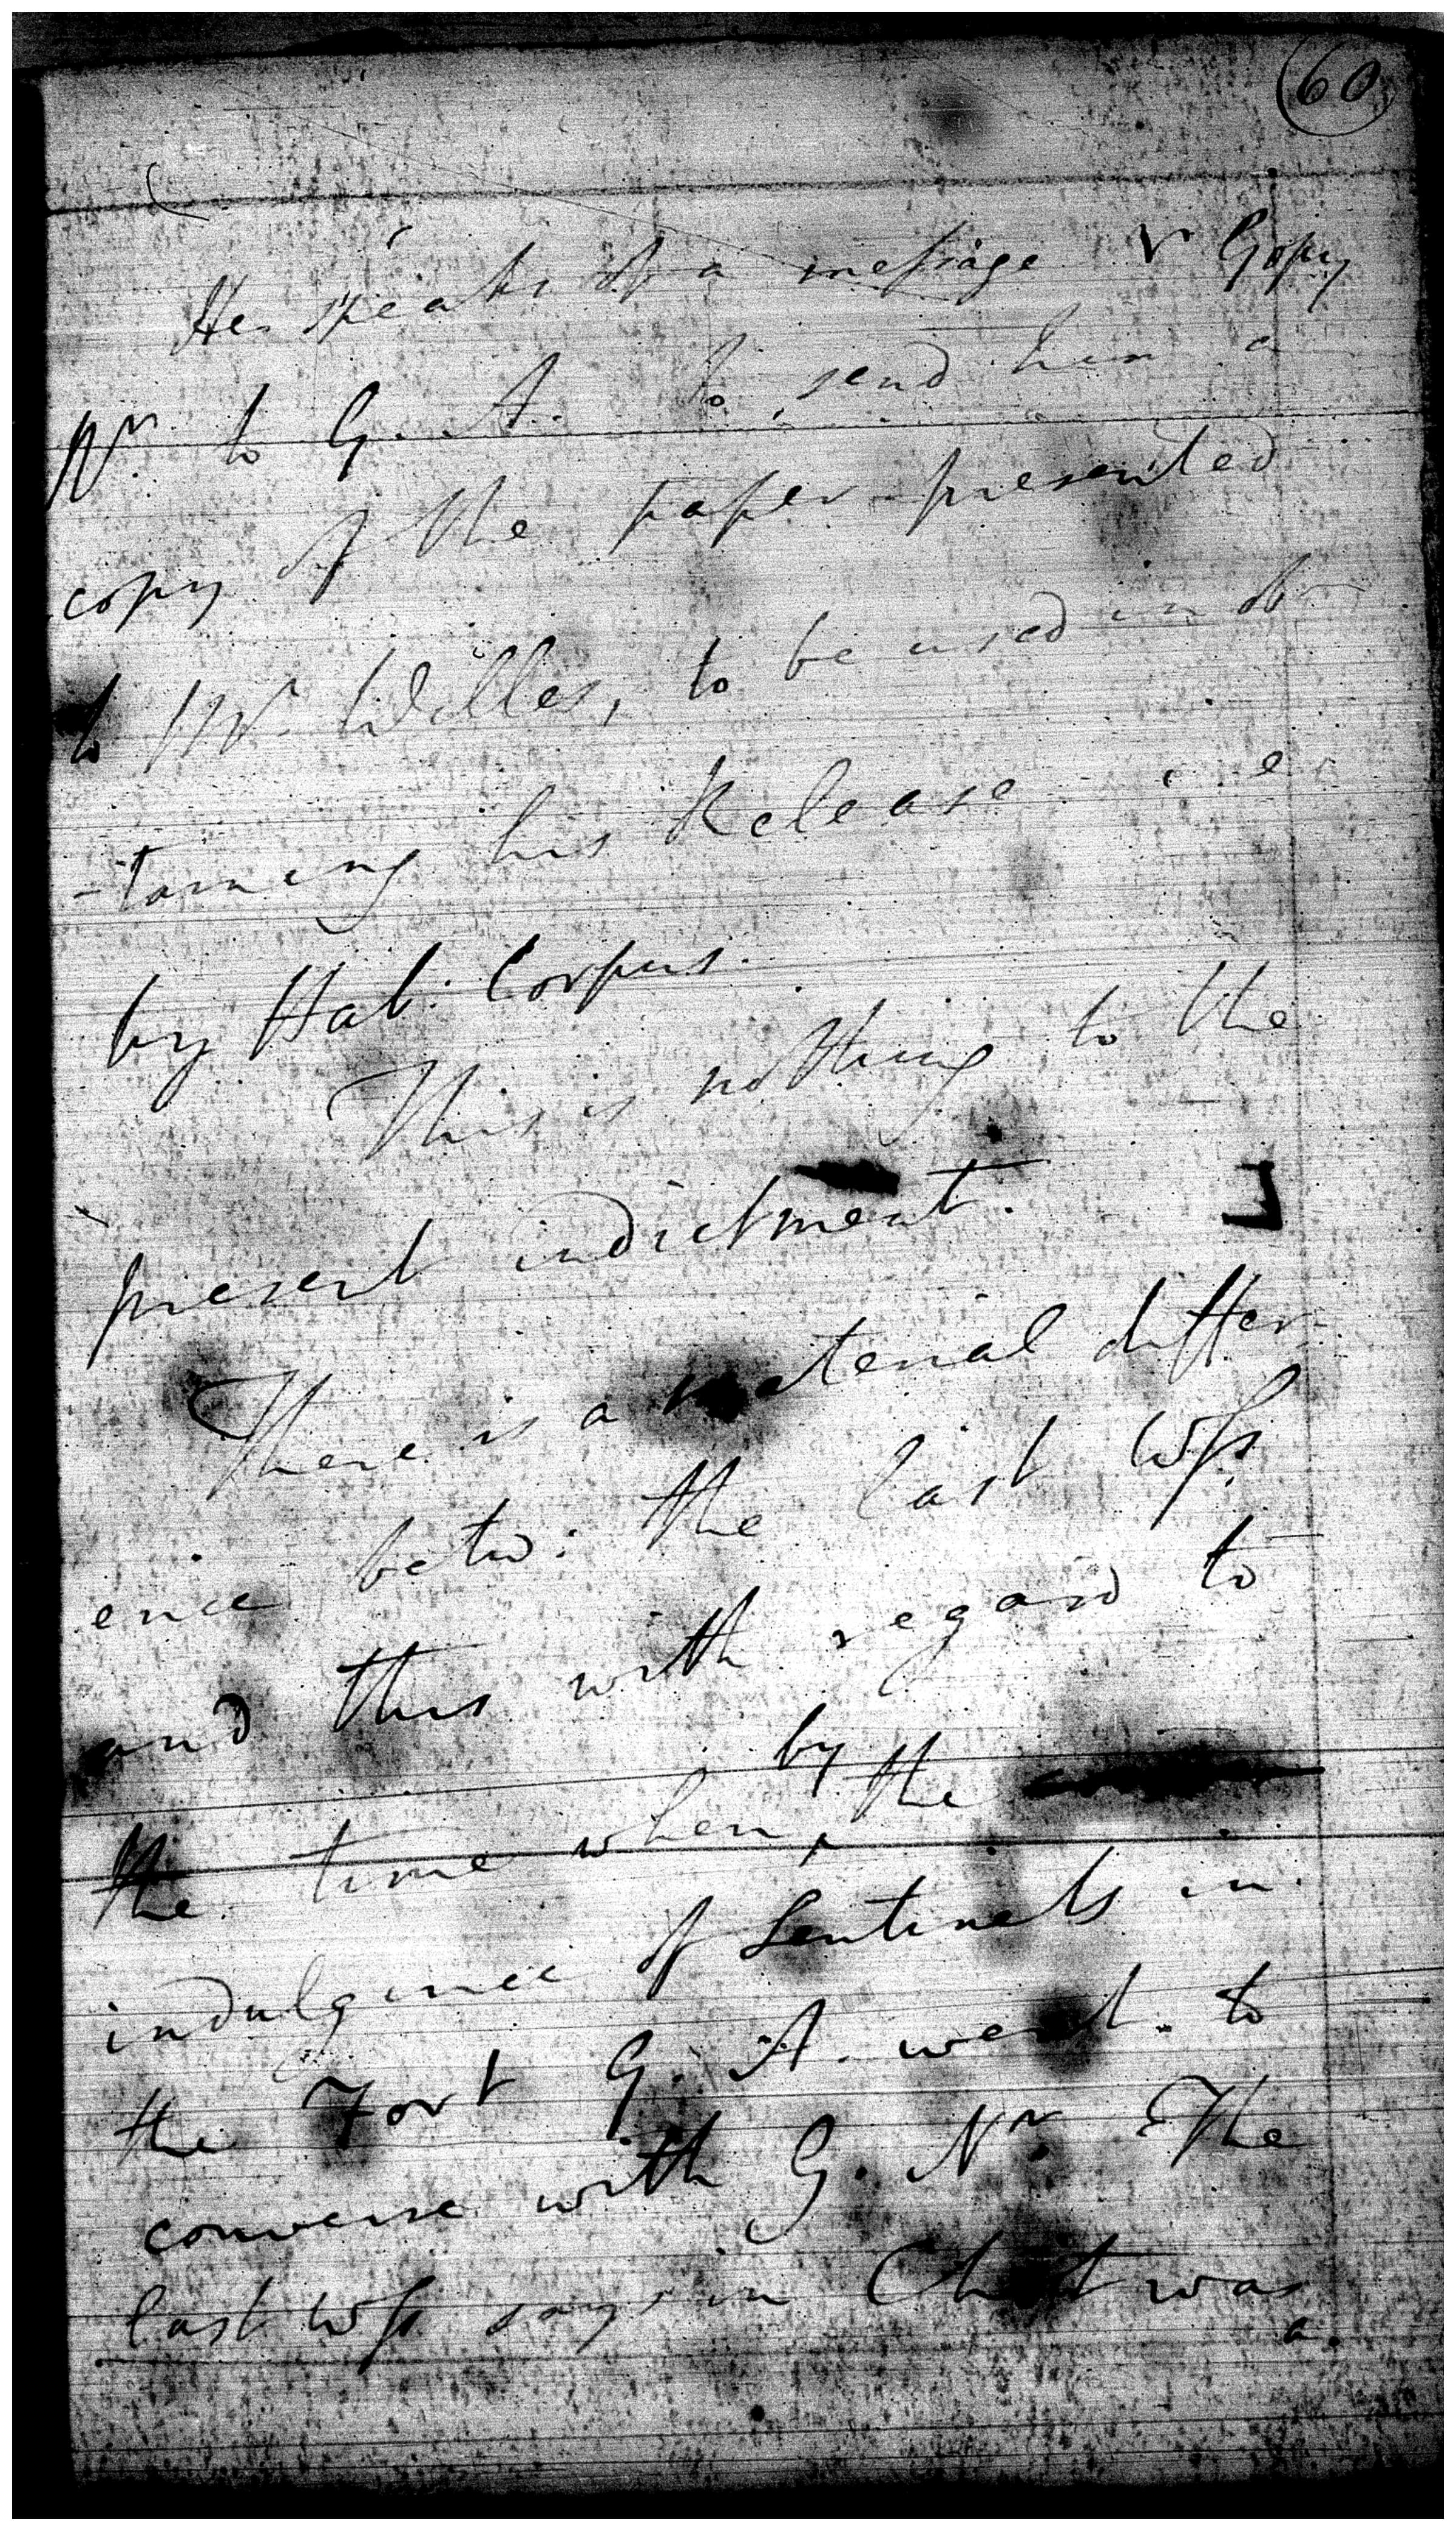 60
He speaks of a message Gopy
Nr. to G. A. to send him a
copy of the paper presented
to Mr. Willes, to be used in ob
-taining his Release
by Hab: Corpus.
This is nothing to the
present indictment. ]
There is a material differ-
ence betw: the last Wss
and this with regard to
the time when by the
indulgence of Sentinels in
the Fort G. A. went to
converse with G. Nr. The
last Wss says in Octr it was